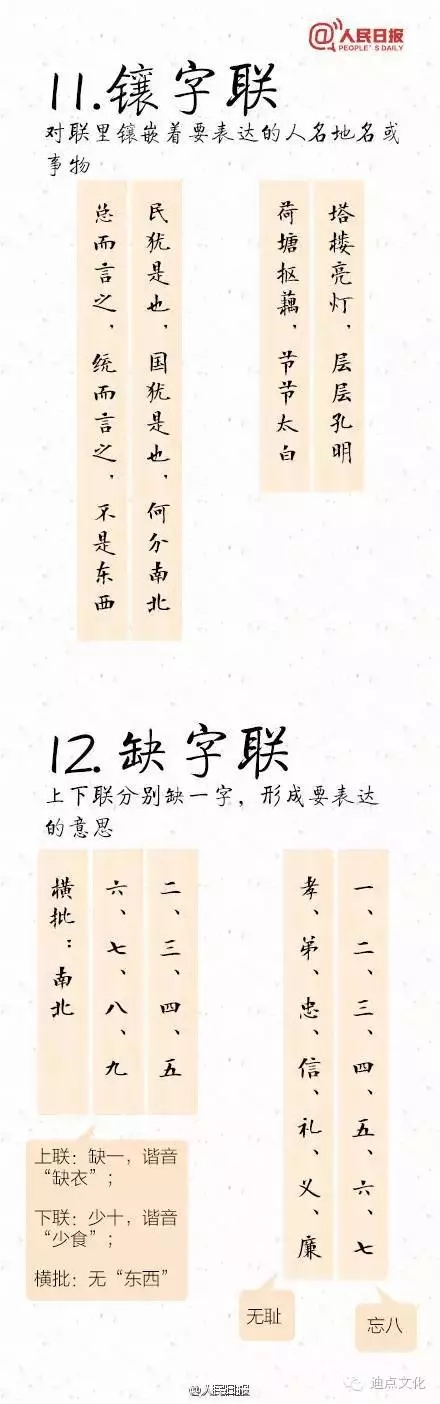 @人民日报
PEOPLE'S DAILY
11.镶字联
对联里镶嵌着要表达的人名地名或
事物
塔搂亮灯，层层孔明
荷塘抠藕，节节太白
民犹是也，国犹是也，何分南北
总而言之，统而言之，不是东西
12.缺字联
上下联分别缺一字，形成要表达
的意思
一、二、三、四、五、六、七
孝、弟、忠、信、礼、义、廉
忘八
无耻
二、三、四、五
六、七、八、九
横批：南北
上联：缺一，谐音
“缺衣”；
下联：少十，谐音
“少食”；
横批：无“东西”
@人民日报
迪点文化